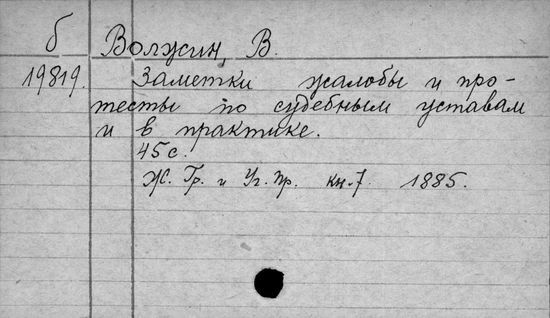 б Волжин, В.
19819. Заметки жалобы и про-
тесты по судебным уставам
и в практике.
45 с.
Ж. Гр. и Уг. пр. кн. 7. 1885.